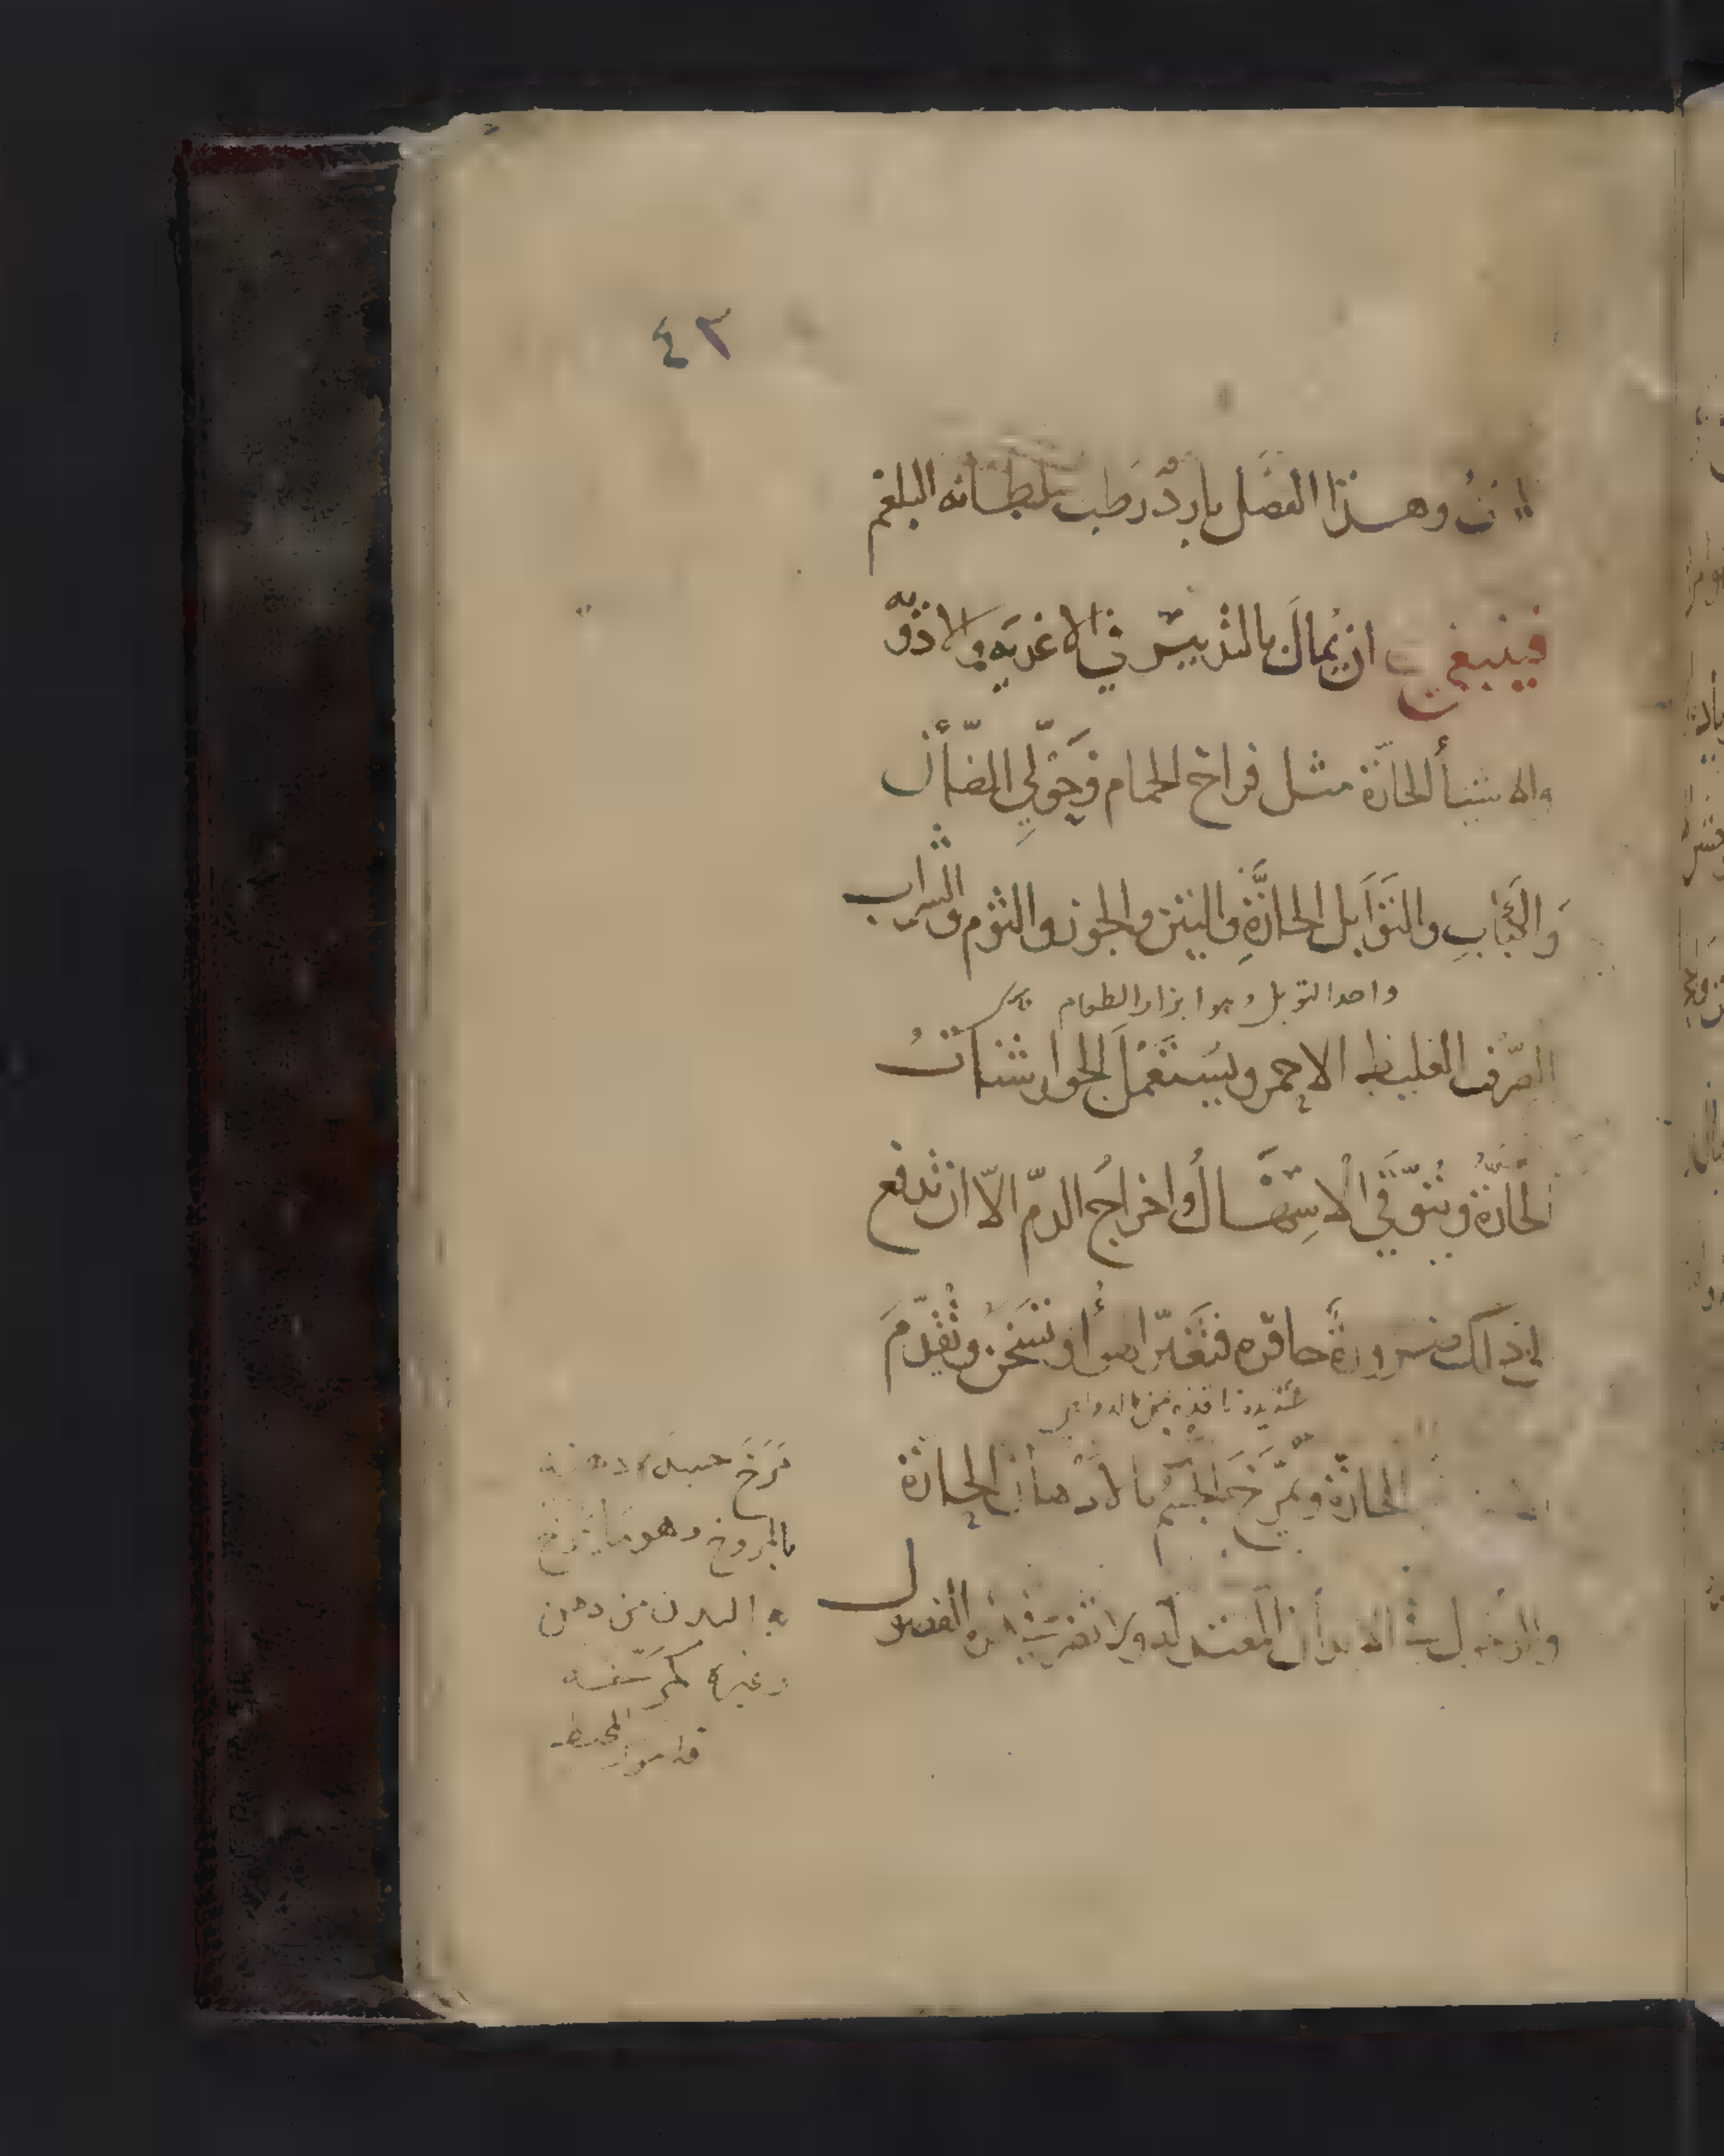 ٤٢
وهذا الفصل بارد رطب سلطانه البلغم
فينبغي ان يُمالَ بالتدبير في الاغذيه والادوية
والاشيأ الحارّة مثل فراخ الحمام وحَوّليِ الضأن
وَالكَبَابِ والتَوَابل الحارَّةِ والتين والجوز والثوم والشراب
واحدا التوبل وهو ابزار الطعام
الصّرف الغليظ الاحمر ويُستَعْمَل الجوارشناتُ
الحارّة ويُتوَّقي الاسهَالُ واخراجُ الدمّ الاّ ان تدفع
الي ذلك ضرورةٌ حافزه فتغَيّر الهوأ وتسَخن وتُقدّمَ
شديدة
الحارّة ويُمرّخ الجسَم بالادهان الحارّة
والدخول الابدان المعتدله ولا تضر في هذه الفصول
مَرَخَ جسده دهنه
بالمروخ وهو ما يمرخ
به البدن من دهن
وغيره كمرّخه
قاموس المحيط